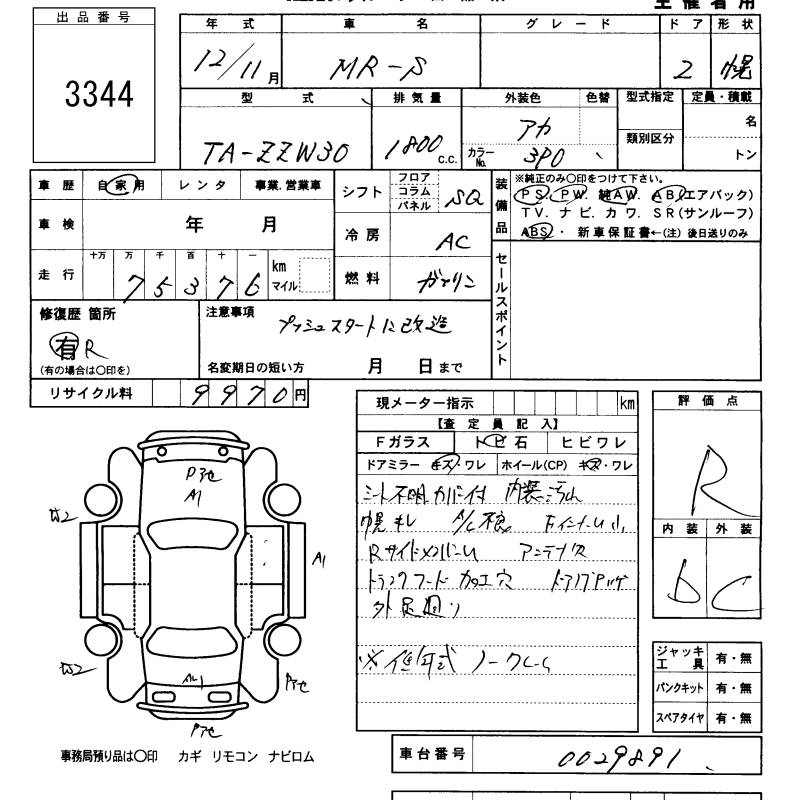 主催者用
出品番号
3344
年式 車名 グレード ドア 形状
12/11月 MR-S 2 幌
型式 排気量 外装色 色替 型式指定 定員・積載
TA-ZZW30 1800c.c. アカ カラーNo. 3P0 類別区分 名 トン
車歴 自家用 レンタ 事業.営業車 シフト フロア コラム パネル SQ
車検 年 月 冷房 AC
走行 十万 万 千 百 十 一
75376 km マイル 燃料 ガソリン
装備品 ※純正のみ〇印をつけて下さい。
PS. PW. 純AW. AB(エアバック)
TV. ナビ. カワ. SR(サンルーフ)
ABS・ 新車保証書←(注) 後日送りのみ
セールスポイント
修復歴 箇所 注意事項
有R プッシュスタートに改造
(有の場合は〇印を) 名変期日の短い方 月 日まで
リサイクル料 9970円
現メーター指示 km
【査定員記入】
Fガラス トビ石 ヒビワレ
ドアミラー キズ・ワレ ホイール(CP) キズ・ワレ
シート不明 カバー付
幌キレ A/C不良
アンテナ欠
トランクフード 加工穴
外 足廻り
※低年式 ノークレーム
評価点
R
内装 外装
D C
ジャッキ工具 有・無
パンクキット 有・無
スペアタイヤ 有・無
Pアセ
A1
A1
Pアセ
Pアセ
事務局預り品は〇印 カギ リモコン ナビロム
車台番号 0029891